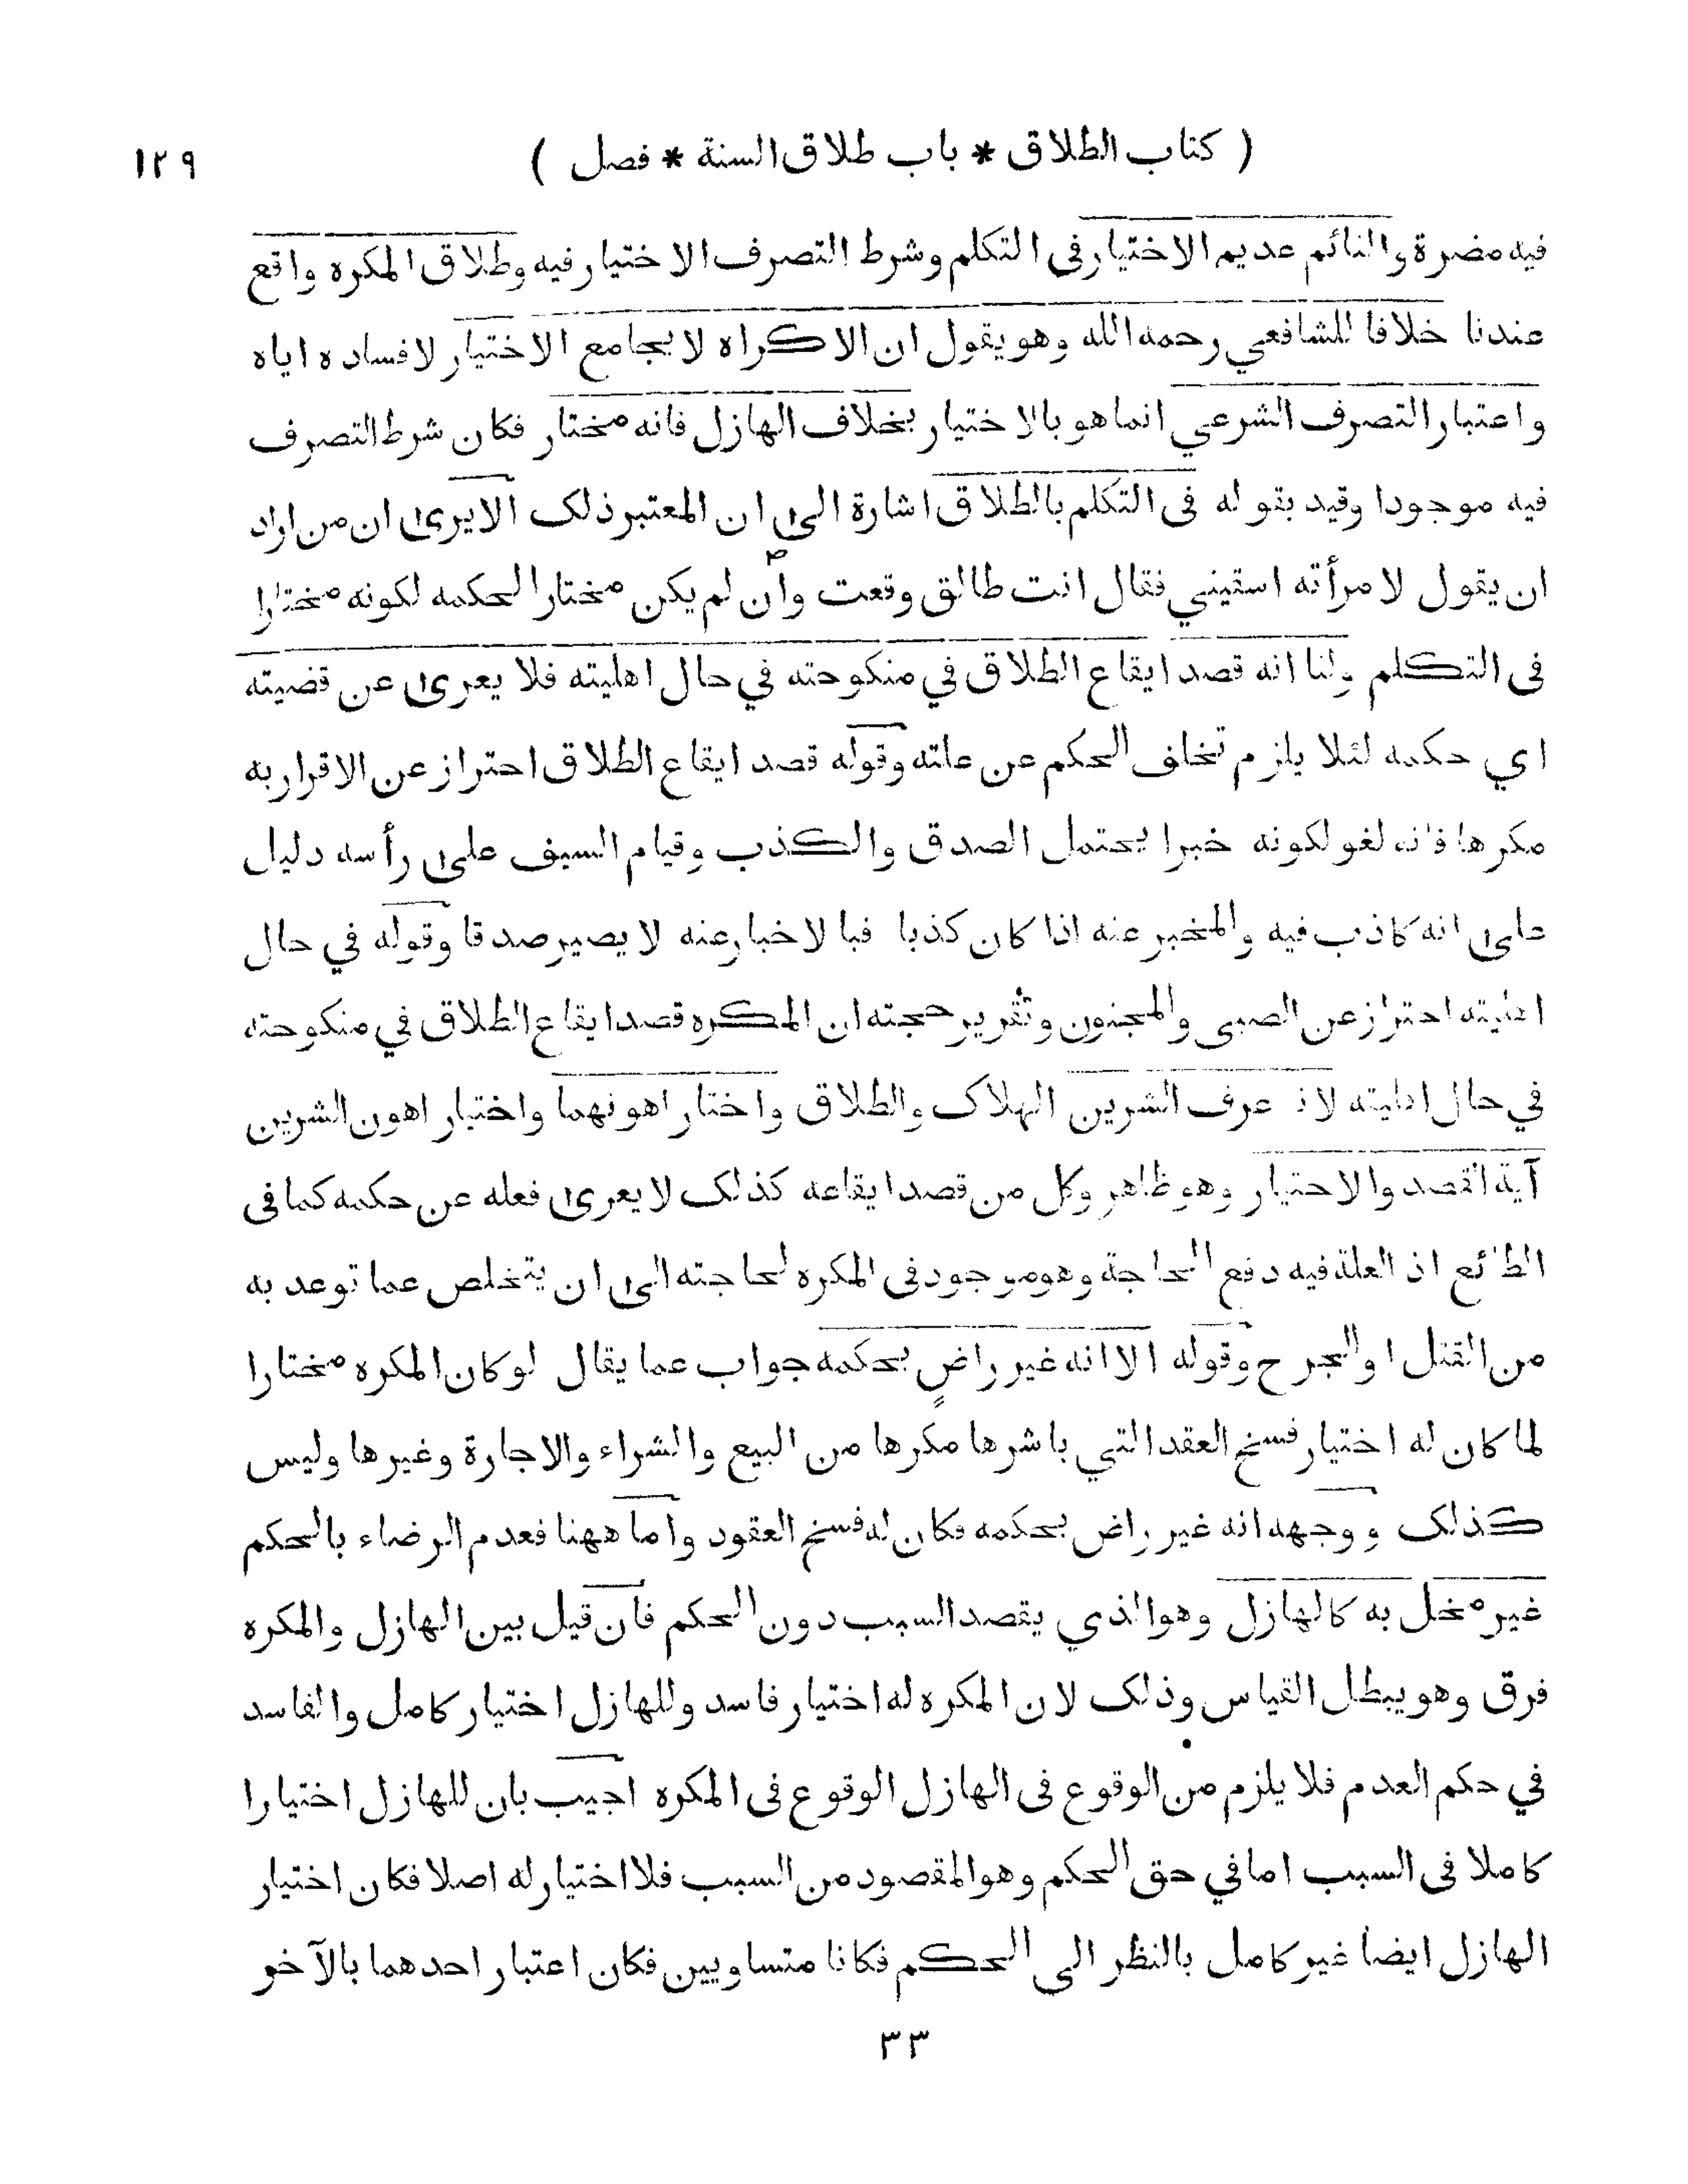 ( كتاب الطلاق * باب طلاق السنة * فصل )
١٢٩
فيه مضرة والنائم عديم الاختيار فى التكلم وشرط التصرف الاختيار فيه وطلاق المكره واقع
عندنا خلافا للشافعي رحمه الله وهو يقول ان الاكراه لا يجامع الاختيار لافساده اياه
واعتبار التصرف الشرعي انما هو بالاختيار بخلاف الهازل فانه مختار فكان شرط التصرف
فيه موجودا وقيد بقوله فى التكلم بالطلاق اشارة الى ان المعتبر ذلك الا يرى ان من اراد
ان يقول لامرأته اسقيني فقال انت طالق وقعت وان لم يكن مختارا لحكمه لكونه مختارا
فى التكلم ولنا انه قصد ايقاع الطلاق في منكوحته في حال اهليته فلا يعرى عن قضيته
اي حكمه لئلا يلزم تخلف الحكم عن علته وقوله قصد ايقاع الطلاق احتراز عن الاقرار به
مكرها فانه لغو لكونه خبرا يحتمل الصدق والكذب وقيام السيف على رأسه دليل
على انه كاذب فيه والمخبر عنه اذا كان كذبا فبالاخبار عنه لا يصير صدقا وقوله في حال
اهليته احتراز عن الصبى والمجنون وتقرير حجته ان المكره قصد ايقاع الطلاق في منكوحته
في حال اهليته لانه عرف الشرين الهلاك والطلاق واختار اهونهما واختيار اهون الشرين
آية القصد والاختيار وهو ظاهر وكل من قصد ايقاعه كذلك لا يعرى فعله عن حكمه كما فى
الطائع اذ العلة فيه دفع الحاجة وهو موجود فى المكره لحاجته الى ان يتخلص عما توعد به
من القتل او الجرح وقوله الا انه غير راضٍ بحكمه جواب عما يقال لو كان المكره مختارا
لما كان له اختيار فسخ العقد التي باشرها مكرها من البيع والشراء والاجارة وغيرها وليس
كذلك ووجهه انه غير راض بحكمه فكان له فسخ العقود واما ههنا فعدم الرضاء بالحكم
غير مخل به كالهازل وهو الذي يقصد السبب دون الحكم فان قيل بين الهازل والمكره
فرق وهو يبطل القياس وذلك لان المكره له اختيار فاسد وللهازل اختيار كامل والفاسد
في حكم العدم فلا يلزم من الوقوع فى الهازل الوقوع فى المكره اجيب بان للهازل اختيارا
كاملا فى السبب اما في حق الحكم وهو المقصود من السبب فلا اختيار له اصلا فكان اختيار
الهازل ايضا غير كامل بالنظر الى الحكم فكانا متساويين فكان اعتبار احدهما بالآخر
٣٣